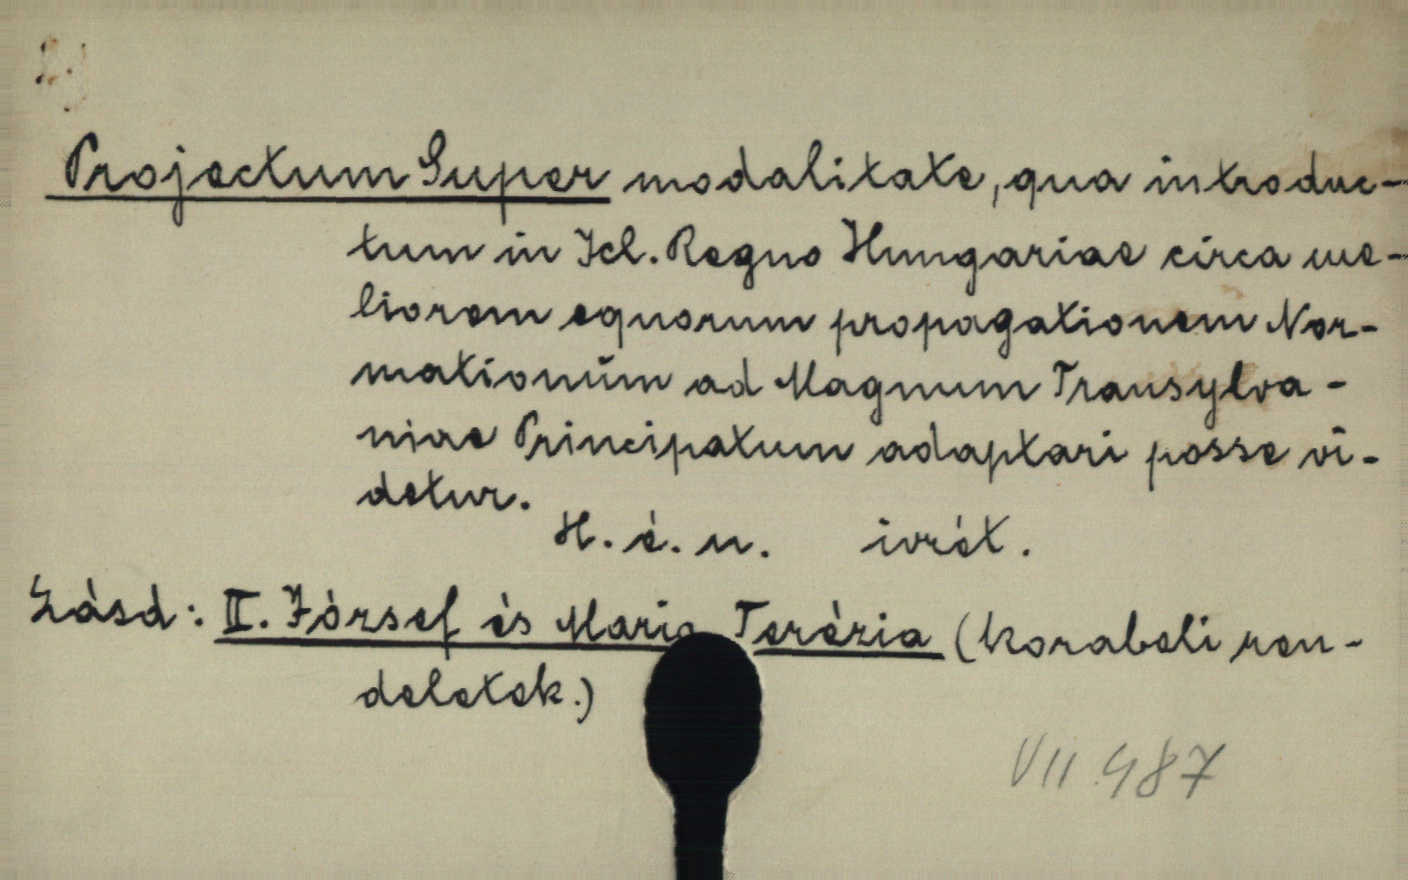 Projectum Super modalitate, qua introduc-
tum in Icl. Regno Hungariae circa me-
liorem equorum propagationem Nor-
mationúm ad Magnum Transylva-
niae Principatum adaptari posse vi-
detur.
H. é. n. ivrét.
Lásd: II. József és Maria Terézia (korabeli ren-
deletek.)
VII 487